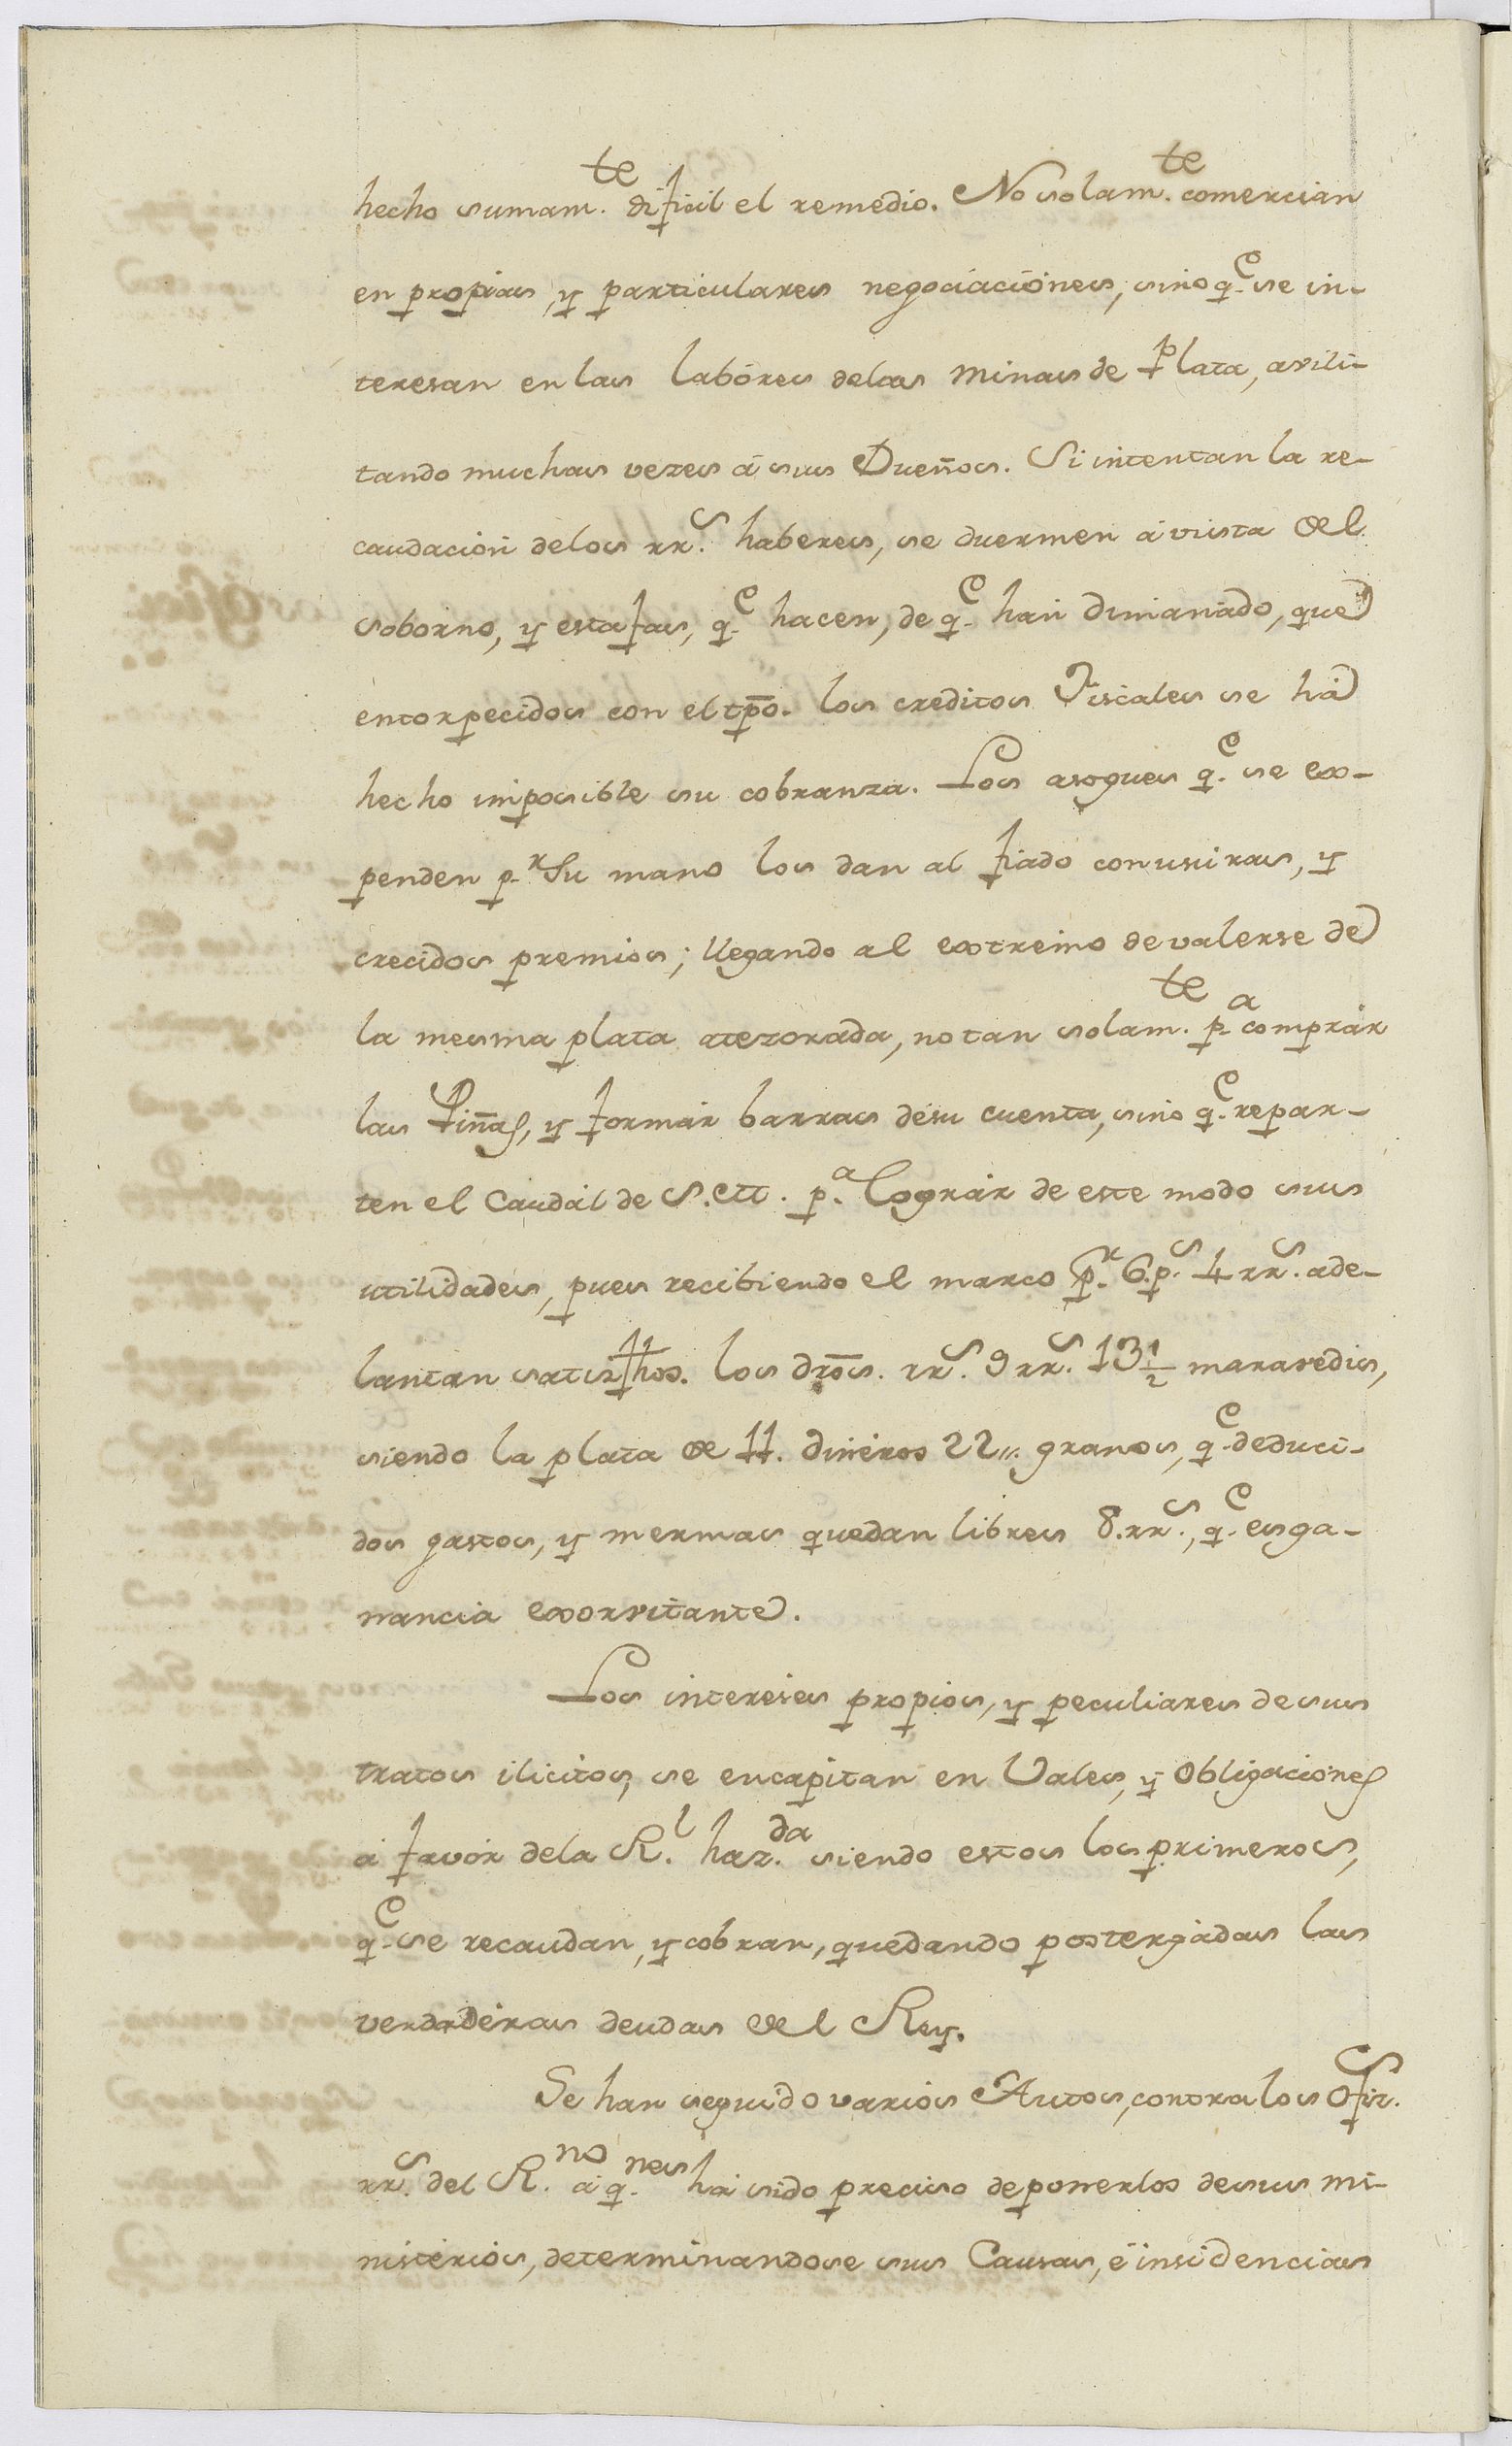 hecho sumam.te dificil el remedio. No solam.te comercian
en propias, y particulares negociaciónes, sino q.e se in-
teresan en las labóres delas Minas de Plata, avili-
tando muchas vezes á sus Dueños. Si intentan la re-
caudación delos rr.s haberes, se duermen á vista del
soborno, y estafas, q.e hacen, de q.e han dimanado, que
entorpecidos con el tpō. los creditos Fiscales se há
hecho imposible su cobranza. Los asogues q.e se ex-
penden p.r Su mano los dan al fiado con usuras, y
crecidos premios; llegando al extremo de valerse de
la mesma plata atezorada, no tan solam.te p.a comprár
las Piñas, y formár barras desu cuenta, sino q.e repar-
ten el Caudál de S.M. p.a lográr de este modo sus
utilidades, pues recibiendo el marco p.r 6.p.s 4 rr.s ade-
lantan satisfhos. los drōs. rr.s 9 rr.s 13 1/2 maravedis,
siendo la plata de 11. dinéros 22,, granos, q.e deduci-
dos gastos, y mermas quedan libres 8.rr.s, q.e es ga-
nancia exorvitante.
Los intereses propios, y peculiares de sus
tratos ilicitos, se encapitan en Vales, y Obligaciónes
á favór dela R.l haz.da siendo estos los primeros,
q.e se recaudan, y cobran, quedando postergádas las
verdadéras deudas del Rey.
Se han seguido varios Autos, contra los Ofiz.s
rr.s del R.no á q.nes há sido preciso deponerlos de sus mi-
nistérios, determinandose sus Causas, é insidencias